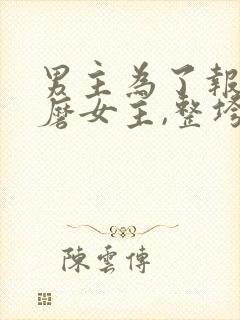 男主為了報
磨女主,整垮
陳雲傳